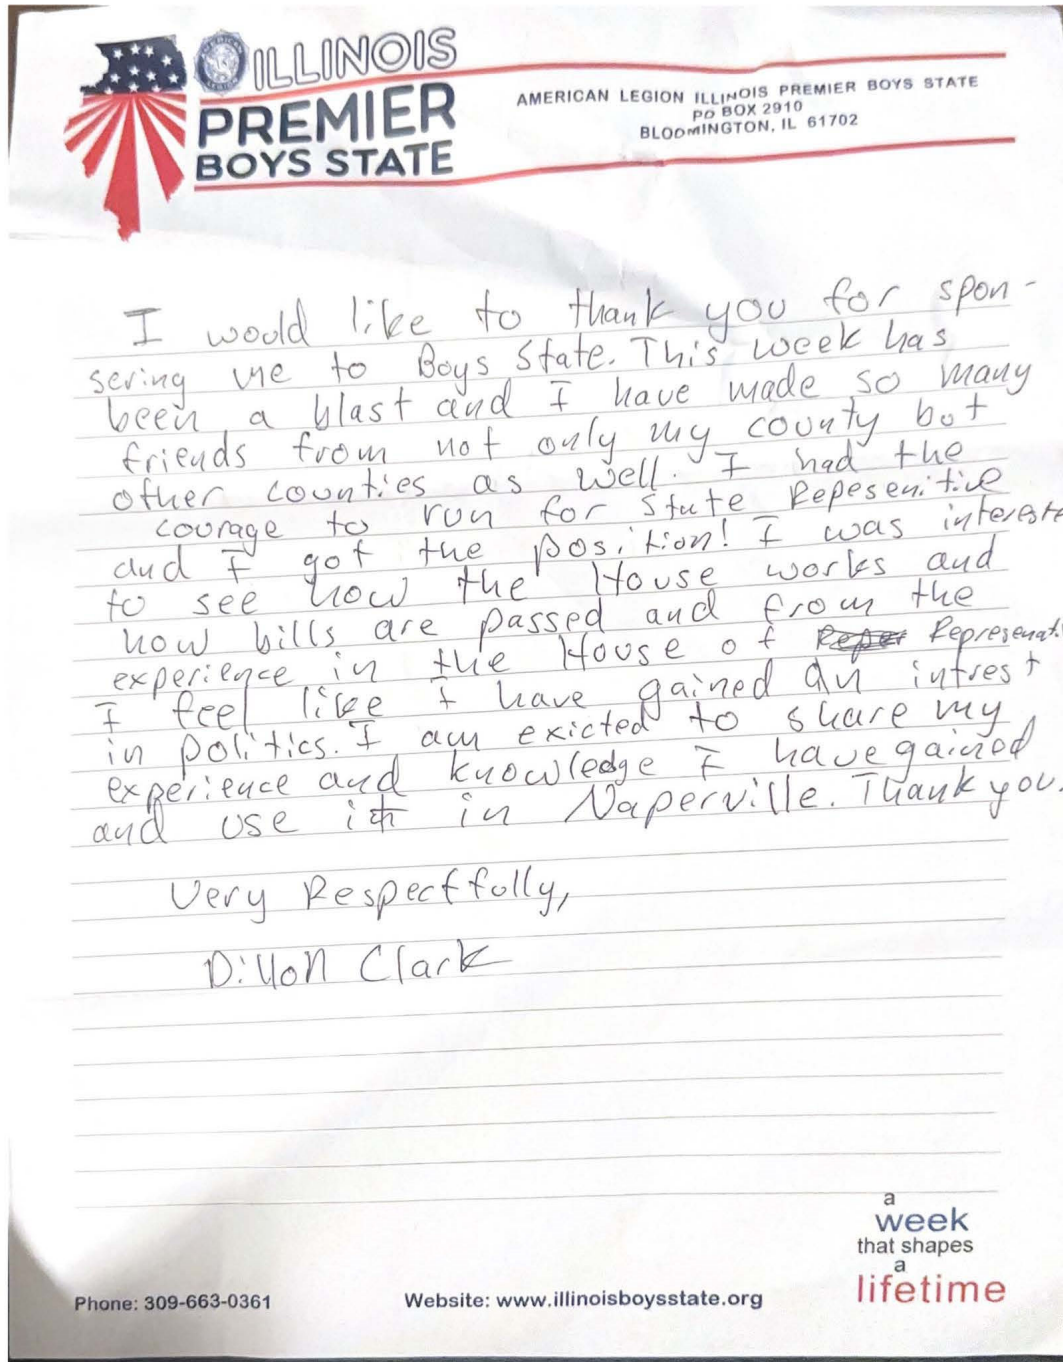 ILLINOIS
PREMIER
BOYS STATE
AMERICAN LEGION ILLINOIS PREMIER BOYS STATE
PO BOX 2910
BLOOMINGTON, IL 61702
I would like to thank you for spon-
sering me to Boys State. This week has
been a blast and I have made so many
friends from not only my county but
other counties as well. I had the
courage to run for State Repesenitive
and I got the position! I was intereste
to see how the House works and
how bills are passed and from the
experience in the House of Represenati
I feel like I have gained an intrest
in politics. I am exicted to share my
experience and knowledge I have gained
and use it in Naperville. Thank you.
Very Respectfully,
Dillon Clark
a
week
that shapes
a
lifetime
Phone: 309-663-0361 Website: www.illinoisboysstate.org